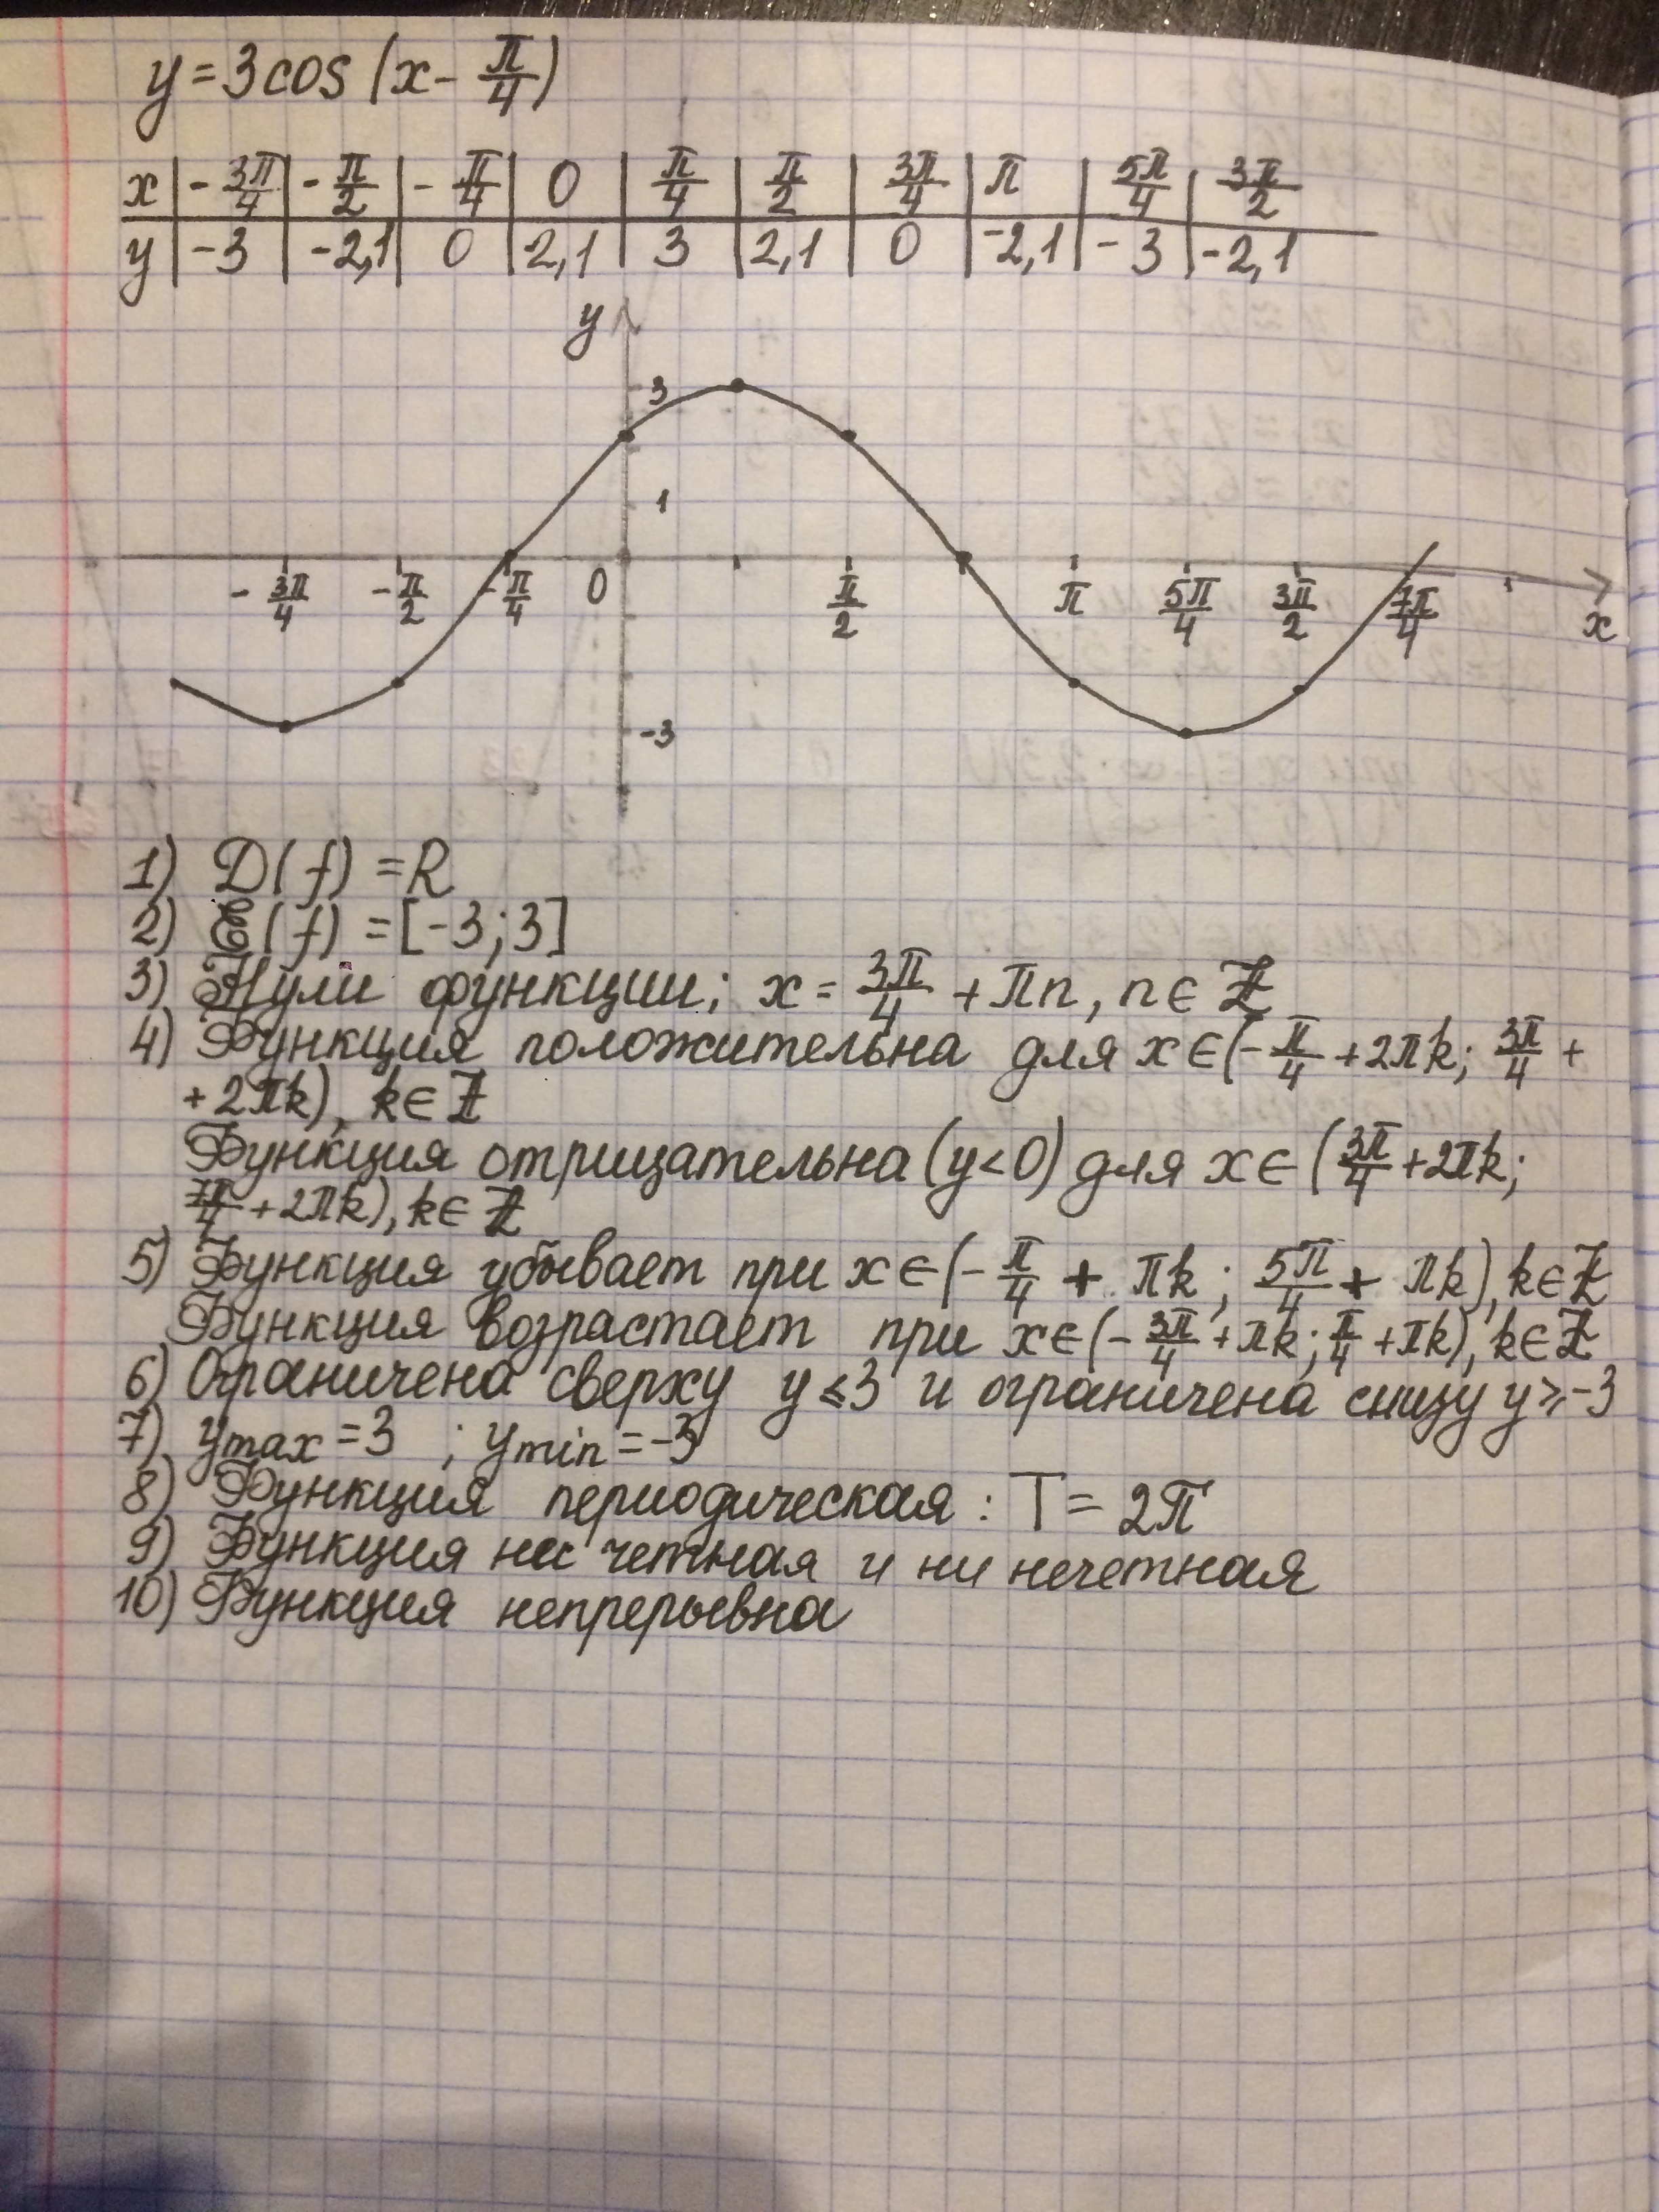 y = 3cos(x - π/4)
x | -3π/4 | -π/2 | -π/4 | 0 | π/4 | π/2 | 3π/4 | π | 5π/4 | 3π/2
y | -3 | -2,1 | 0 | 2,1 | 3 | 2,1 | 0 | -2,1 | -3 | -2,1
y
3
1
-3π/4 -π/2 -π/4 0 π/2 π 5π/4 3π/2 7π/4 x
-3
1) D(f) = R
2) E(f) = [-3; 3]
3) Нули функции; x = 3π/4 + πn, n ∈ Z
4) Функция положительна для x ∈ (-π/4 + 2πk; 3π/4 +
+ 2πk), k ∈ Z
Функция отрицательна (y<0) для x ∈ (3π/4 + 2πk;
7π/4 + 2πk), k ∈ Z
5) Функция убывает при x ∈ (-π/4 + πk; 5π/4 + πk), k ∈ Z
Функция возрастает при x ∈ (-3π/4 + πk; π/4 + πk), k ∈ Z
6) Ограничена сверху y ≤ 3 и ограничена снизу y ≥ -3
7) ymax = 3 ; ymin = -3
8) Функция периодическая : T = 2π
9) Функция ни четная и ни нечетная
10) Функция непрерывна